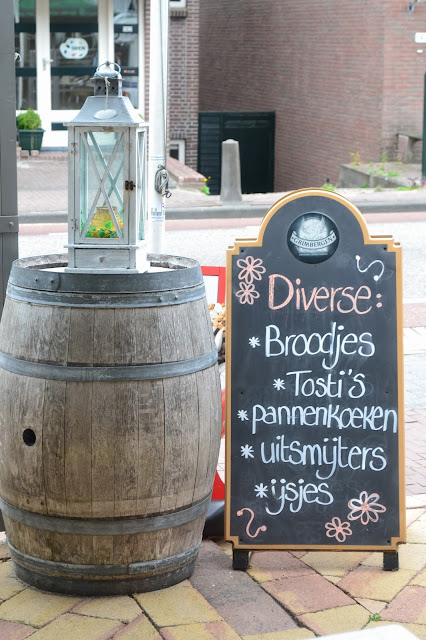 GRIMBERGEN
Diverse:
* Broodjes
* Tosti's
* pannenkoeken
* uitsmijters
* ijsjes